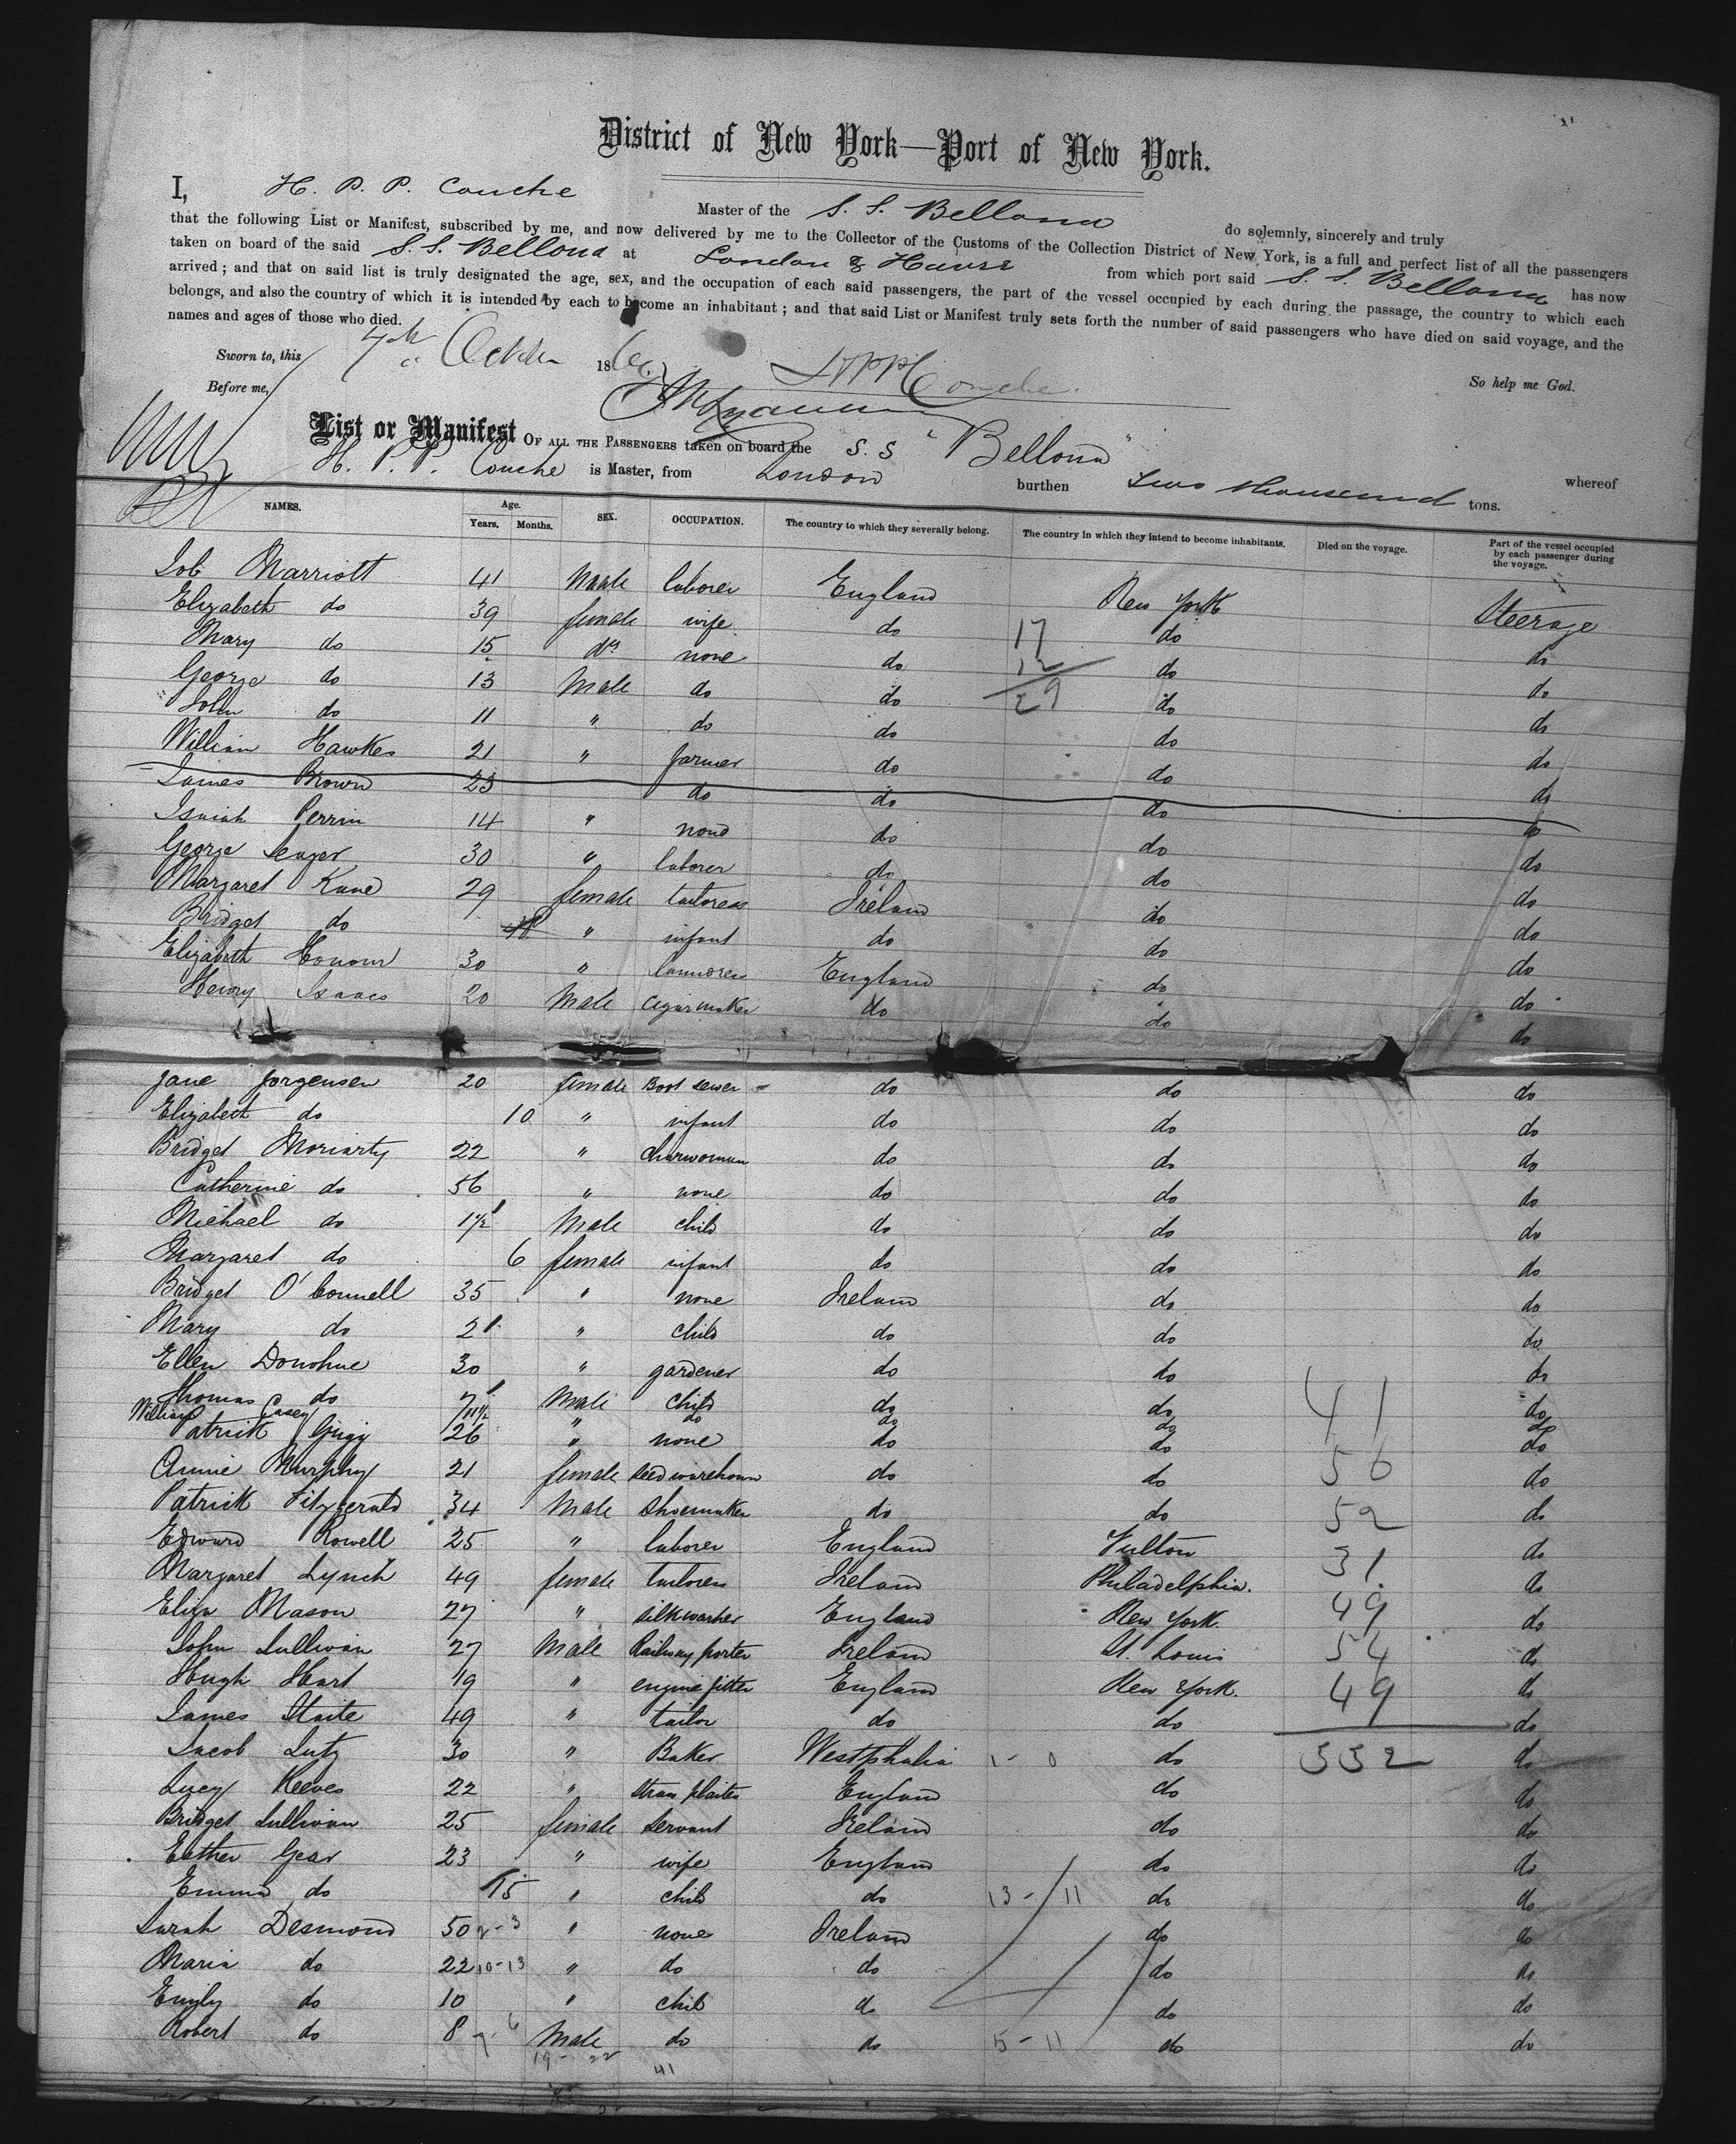 District of New York—Port of New York.
I, H. P. P. Couche Master of the S. S. Bellona do solemnly, sincerely and truly
that the following List or Manifest, subscribed by me, and now delivered by me to the Collector of the Customs of the Collection District of New York, is a full and perfect list of all the passengers
taken on board of the said S. S. Bellona at London & Havre from which port said S. S. Bellona has now
arrived; and that on said list is truly designated the age, sex, and the occupation of each said passengers, the part of the vessel occupied by each during the passage, the country to which each
belongs, and also the country of which it is intended by each to become an inhabitant; and that said List or Manifest truly sets forth the number of said passengers who have died on said voyage, and the
names and ages of those who died.
Sworn to, this 7th October 186 HPPCouche So help me God.
Before me,
List or Manifest OF ALL THE PASSENGERS taken on board the S. S "Bellona" whereof
H. P. P. Couche is Master, from London burthen Two thousand tons.
NAMES. Age. Years. Months. SEX. OCCUPATION. The country to which they severally belong. The country in which they intend to become inhabitants. Died on the voyage. Part of the vessel occupied by each passenger during the voyage.
Job Marriott 41 Male laborer England New York Steerage
Elizabeth do 39 female wife do 17 do do
Mary do 15 do none do 12 do do
George do 13 Male do do 29 do do
John do 11 " do do do do
William Hawkes 21 " farmer do do do
James Brown 23 do do do do
Isaiah Perrin 14 " none do do do
George Seager 30 " laborer do do do
Margaret Kane 29 female tailoress Ireland do do
Bridget do " infant do do do
Elizabeth Honour 30 " England do do
Henry Isaacs 20 Male Cigarmaker do do do
Jane Jorgensen 20 female Boot sewer do do do
Elizabeth do 10 " infant do do do
Bridget Moriarty 22 " Charwoman do do do
Catherine do 56 " none do do do
Michael do 1½ Male child do do do
Margaret do 6 female infant do do do
Bridget O'Connell 35 " none Ireland do do
Mary do 2 " child do do do
Ellen Donohue 30 " gardener do do do
Thomas do 7 Male child do do 41 do
William Casey 11½ " do do do do
Patrick 26 " none do do do
Annie Murphy 21 female seedwarehouse do do 56 do
Patrick Fitzgerald 34 Male Shoemaker do do 52 do
Edward Rowell 25 " laborer England Fulton 31 do
Margaret Lynch 49 female tailoress Ireland Philadelphia. do
Eliza Mason 27 " silkwasher England New York. 49 do
John Sullivan 27 Male Railway porter Ireland St. Louis 54 do
Hugh Hart 19 " engine fitter England New York. 49 do
James Staite 49 " tailor do do do
Jacob Lutz 30 " Baker Westphalia 1 - 0 do 332 do
Lucy Reeves 22 " Straw plaiter England do do
Bridget Sullivan 25 female servant Ireland do do
Esther Gear 23 " wife England do do
Emma do 15 " child do 13 - 11 do do
Sarah Desmond 50 2 - 3 " none Ireland do do
Maria do 22 10-13 " do do do do
Emily do 10 " child do do do
Robert do 8 7 - 6 Male do do 5 - 11 do do
19 - 22 41